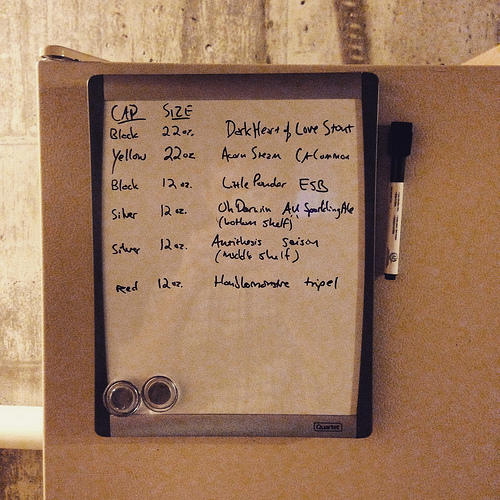 CAP SIZE
Black 22oz. Dark Heart of Love Stout
Yellow 22oz Steam CA Common
Black 12 oz. Little Pondar ESB
Silver 12 oz. Oh Darwin AU Sparkling Ale
(bottom shelf)
Silver 12 oz. saison
(middle shelf)
reed 12 oz. tripel
Quartet